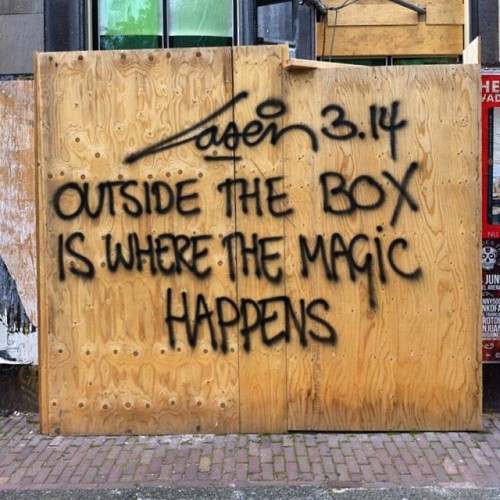 Laser 3.14
OUTSIDE THE BOX
IS WHERE THE MAGiC
HAPPENS